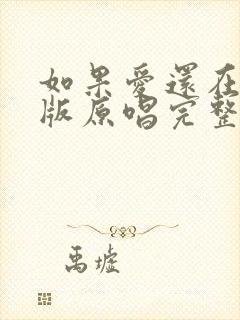 如果愛還在
版原唱完整
禹墟